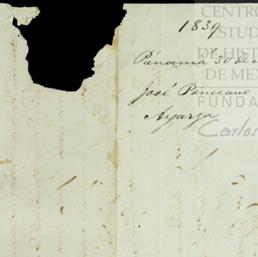 1839
CENTRO
ESTUD
DE HIST
DE MEX
FUNDA
Carlos
Panamá 30 de
José Ponciano
Ayarza